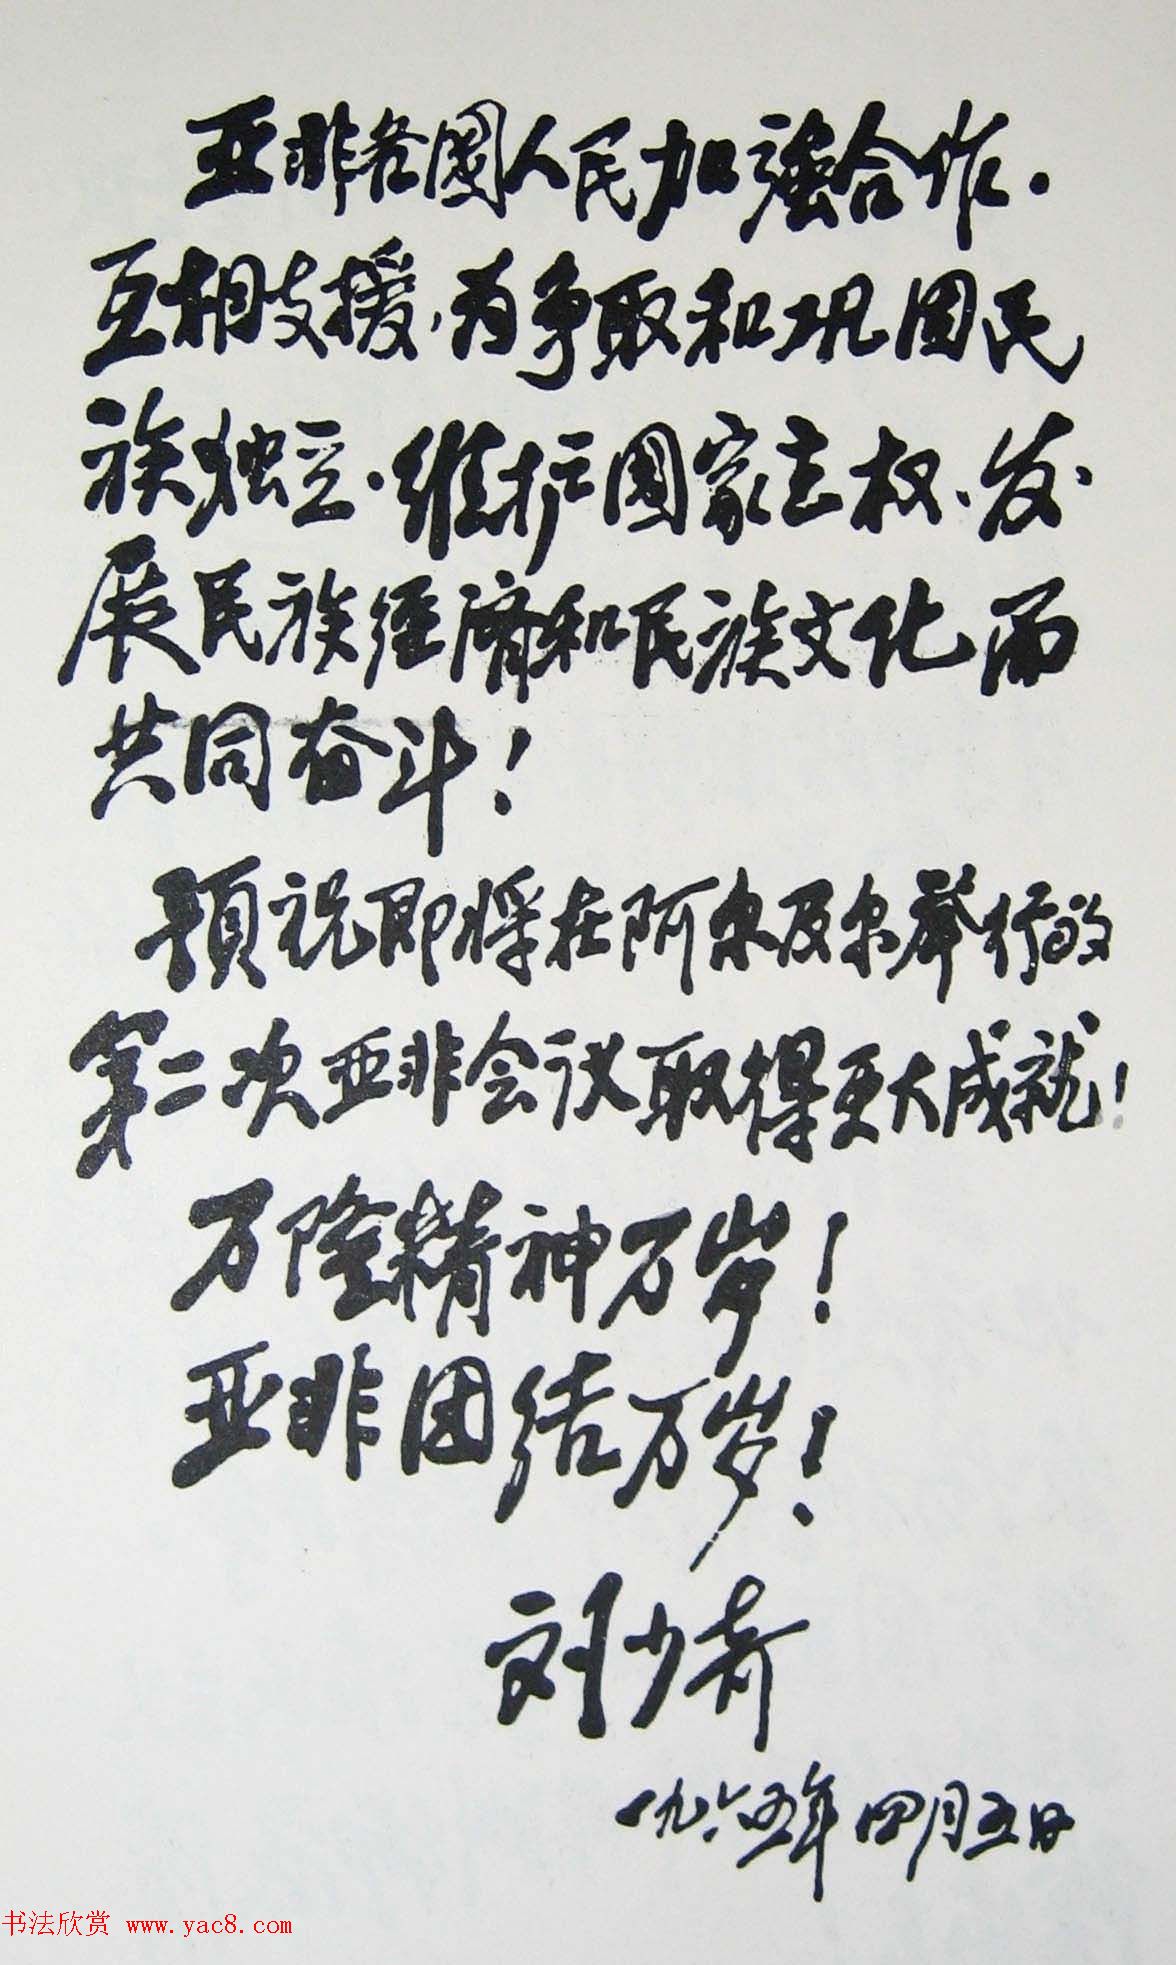 亚非各國人民加强合作.
互相支援,为争取和巩固民
族独立.维护國家主权、发
展民族经濟和民族文化而
共同奋斗!
预祝即将在阿尔及尔举行的
第二次亚非会议取得更大成就!
万隆精神万岁!
亚非团结万岁!
刘少奇
一九六五年四月五日
书法欣赏 www.yac8.com